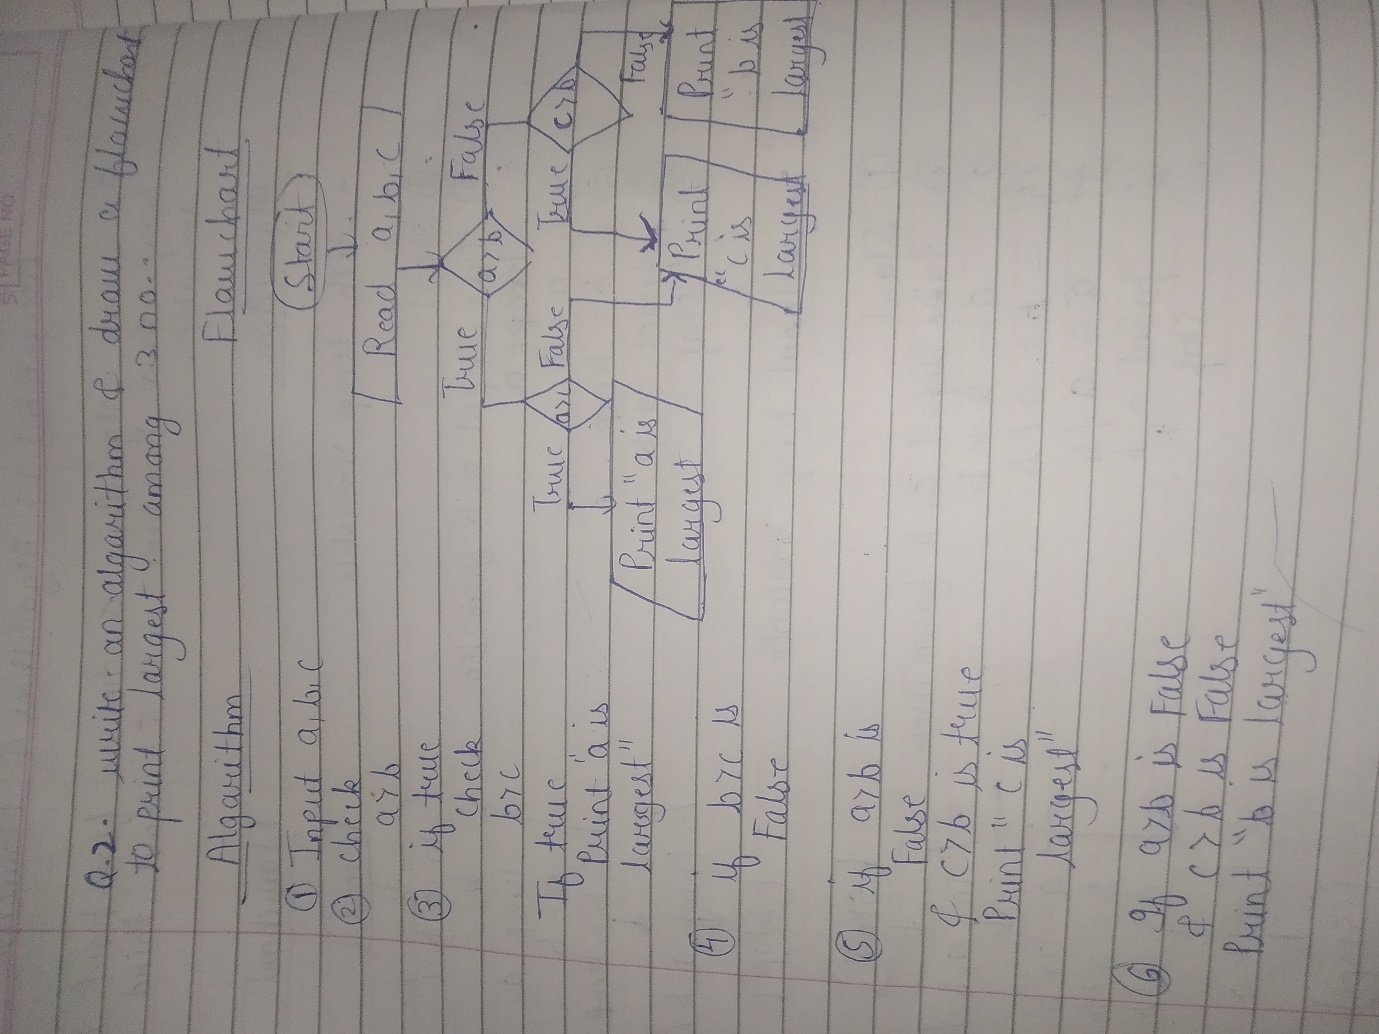 Q.2. write an algorithm & draw a flauchart
to print largest among 3 no..
Algarithm
① Input a,b,c
② check
a>b
③ if true
check
b>c
If true
Print "a is
largest"
④ if b>c is
False
⑤ if a>b is
False
& c>b is true
Print "c is
largest"
⑥ If a>b is False
& c>b is False
Print "b is largest"
Flauchart
Start
Read a,b,c
a>b
True
False
a>c
True
False
c>b
True
False
Print "a is
largest
Print
"c is
largest
Print
"b is
largest
PAGE NO.